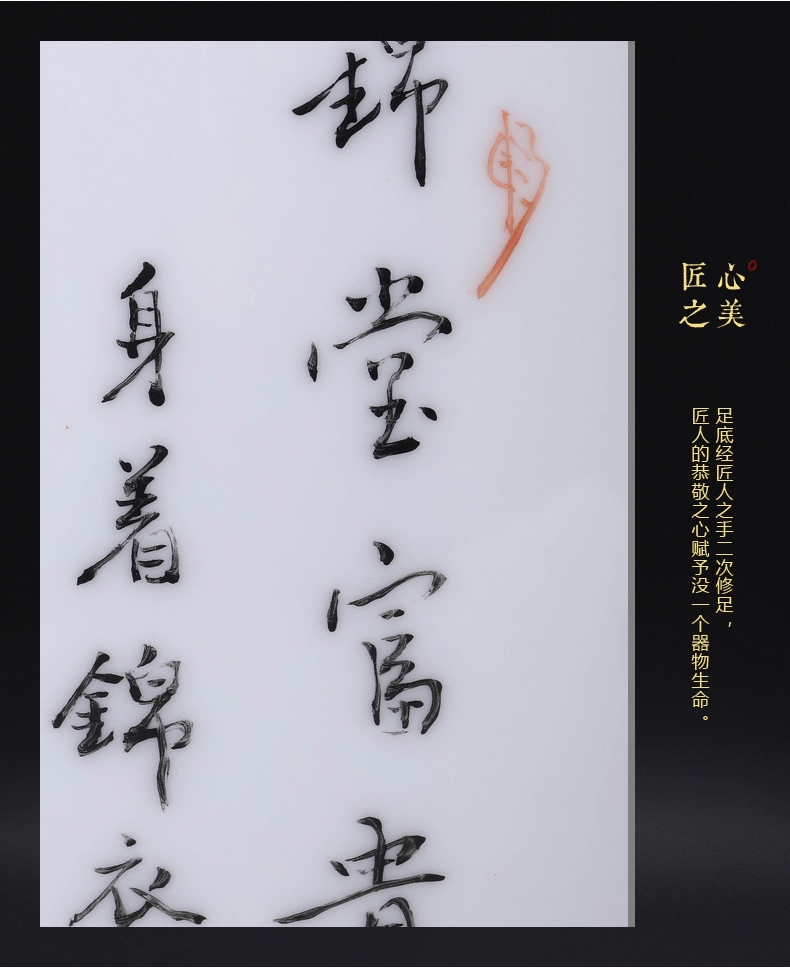 匠心
之美
足底经匠人之手二次修足，
匠人的恭敬之心赋予没一个器物生命。
錦堂富貴
身着錦衣